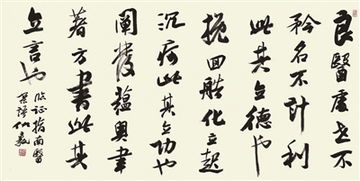 良醫處世不
矜名不計利
此其立德也
挽回造化立起
沉疴此其立功也
闡發蘊奧聿
著方書此其
立言也
臨证指南醫
案語